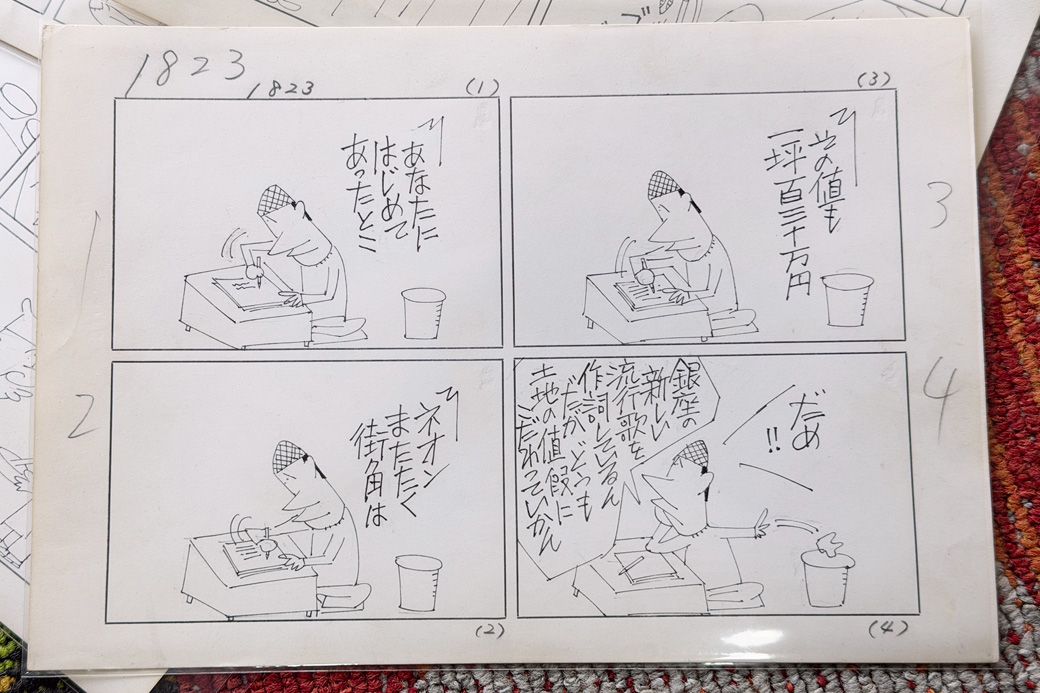 1823
1823
(1)
〽あなたに
はじめて
あったとこ
1
〽ネオン
またたく
街角は
2
(2)
(3)
〽その値も
一坪百三十万円
3
だめ
!!
銀座の
新しい
流行歌を
作詞しているん
だが どうも
土地の値段に
こだわっていかん
4
(4)